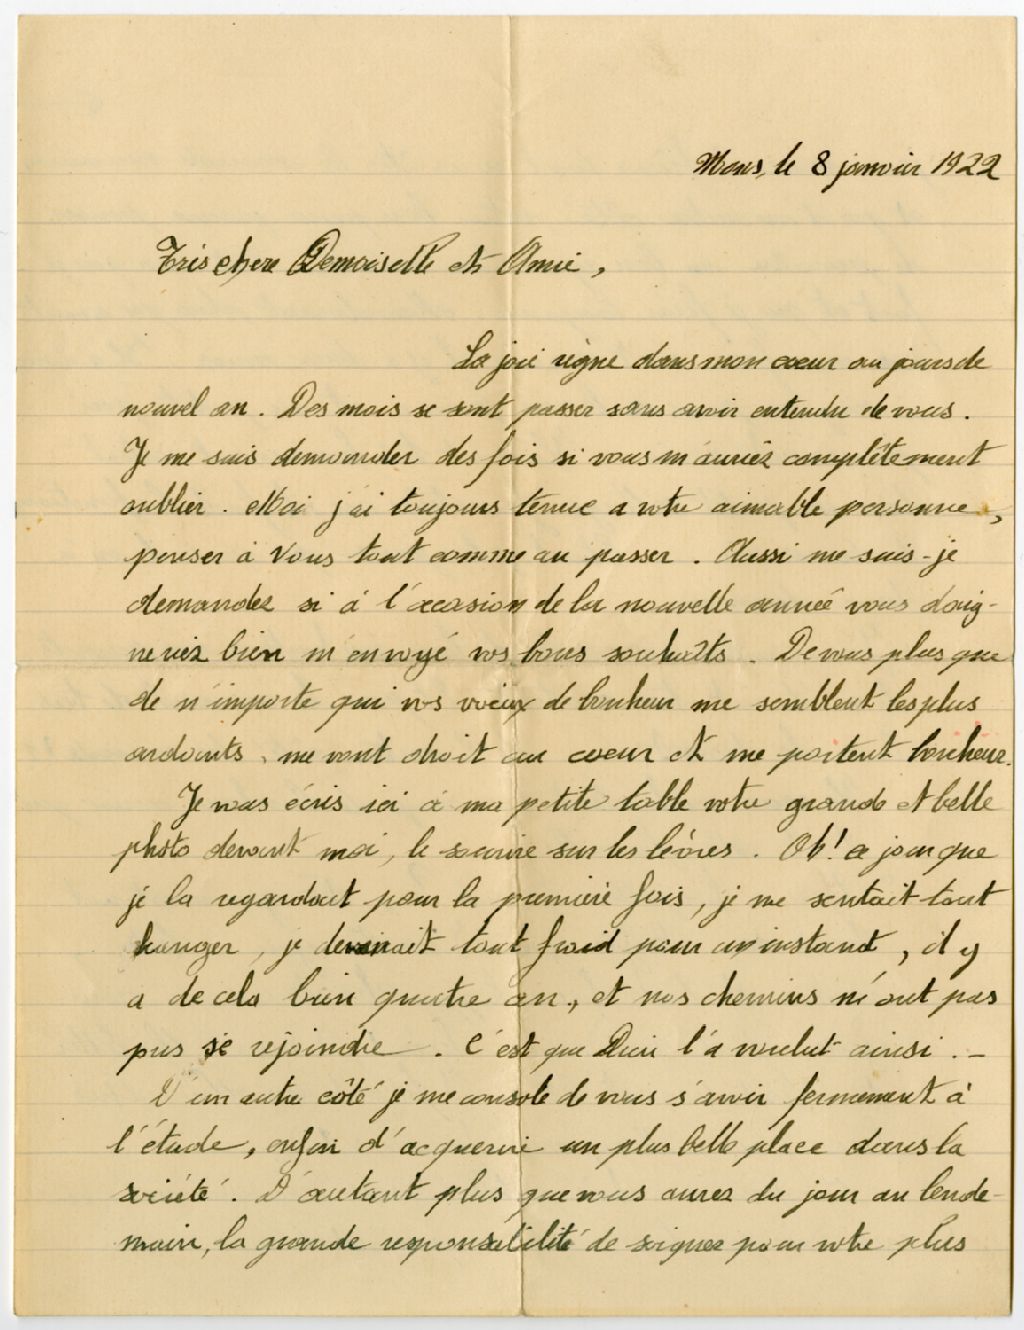 Mons, le 8 janvier 1922
Très chere Demoiselle et Amie,
La joie règne dans mon cœur au jours de
nouvel an. Des mois se sont passer sans avoir entendu de vous.
Je me suis demander des fois si vous m'auriez complêtement
oublier. Moi j'ai toujours tenue a votre aimable personne,
penser à Vous tout comme au passer. Aussi me suis-je
demandez si à l'accasion de la nouvelle année vous daig-
neriez bien m'envoyé vos bons souhaits. De vous plus que
de n'importe qui vos voeux de bonheur me semblent les plus
ardants, me vont droit au coeur et me portent bonheur.
Je vous écris ici à ma petite table votre grande et belle
photo devant moi, le sourire sur les lèvres. Oh! ce jour que
je la regardait pour la premiere fois, je me sentait tout
hanger, je devenait tout froid pour un instand, il y
a de cela bien quatre an, et nos chemins n'ont pas
pus se rejoindre. C'est que Dieu l'a voulut ainsi. -
D'un autre côté je me console de vous s'avoir fermement à
l'étude, enfin d'acquerrir un plus belle place dans la
société. D'autant plus que vous aurez du jour au lende-
main, la grande responsabilité de soigner pour votre plus